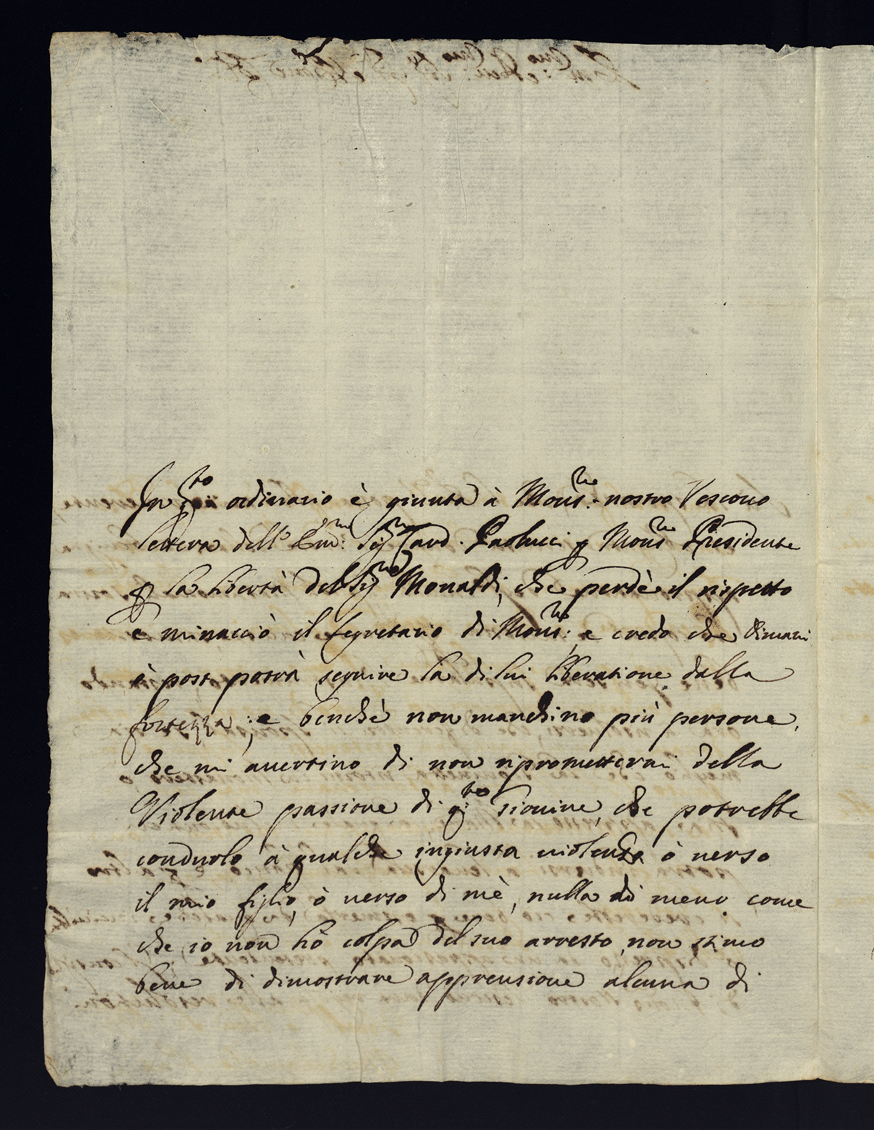 In q.to ordinario è giunta à Mons.re nostro Vescouo
lettera dell'Em.mo Sig.r Card. Paolucci p Mons.re Presidente
p la libertà del Sig.re Monaldi, che perdè il rispetto
e minacciò il segretario di Mons.re; e credo che dimani
ò post potrà seguire la di lui liberatione dalla
fortezza; e benche non manchino più persone,
che mi auertino di non ripromettermi della
Violente passione di q.to Giouine, che potrebbe
condurlo à qualche ingiusta uiolenza ò uerso
il mio figlio, ò uerso di mè, nulla di meno come
che io non hò colpa del suo arresto, non stimo
bene di dimostrare apprensione alcuna di